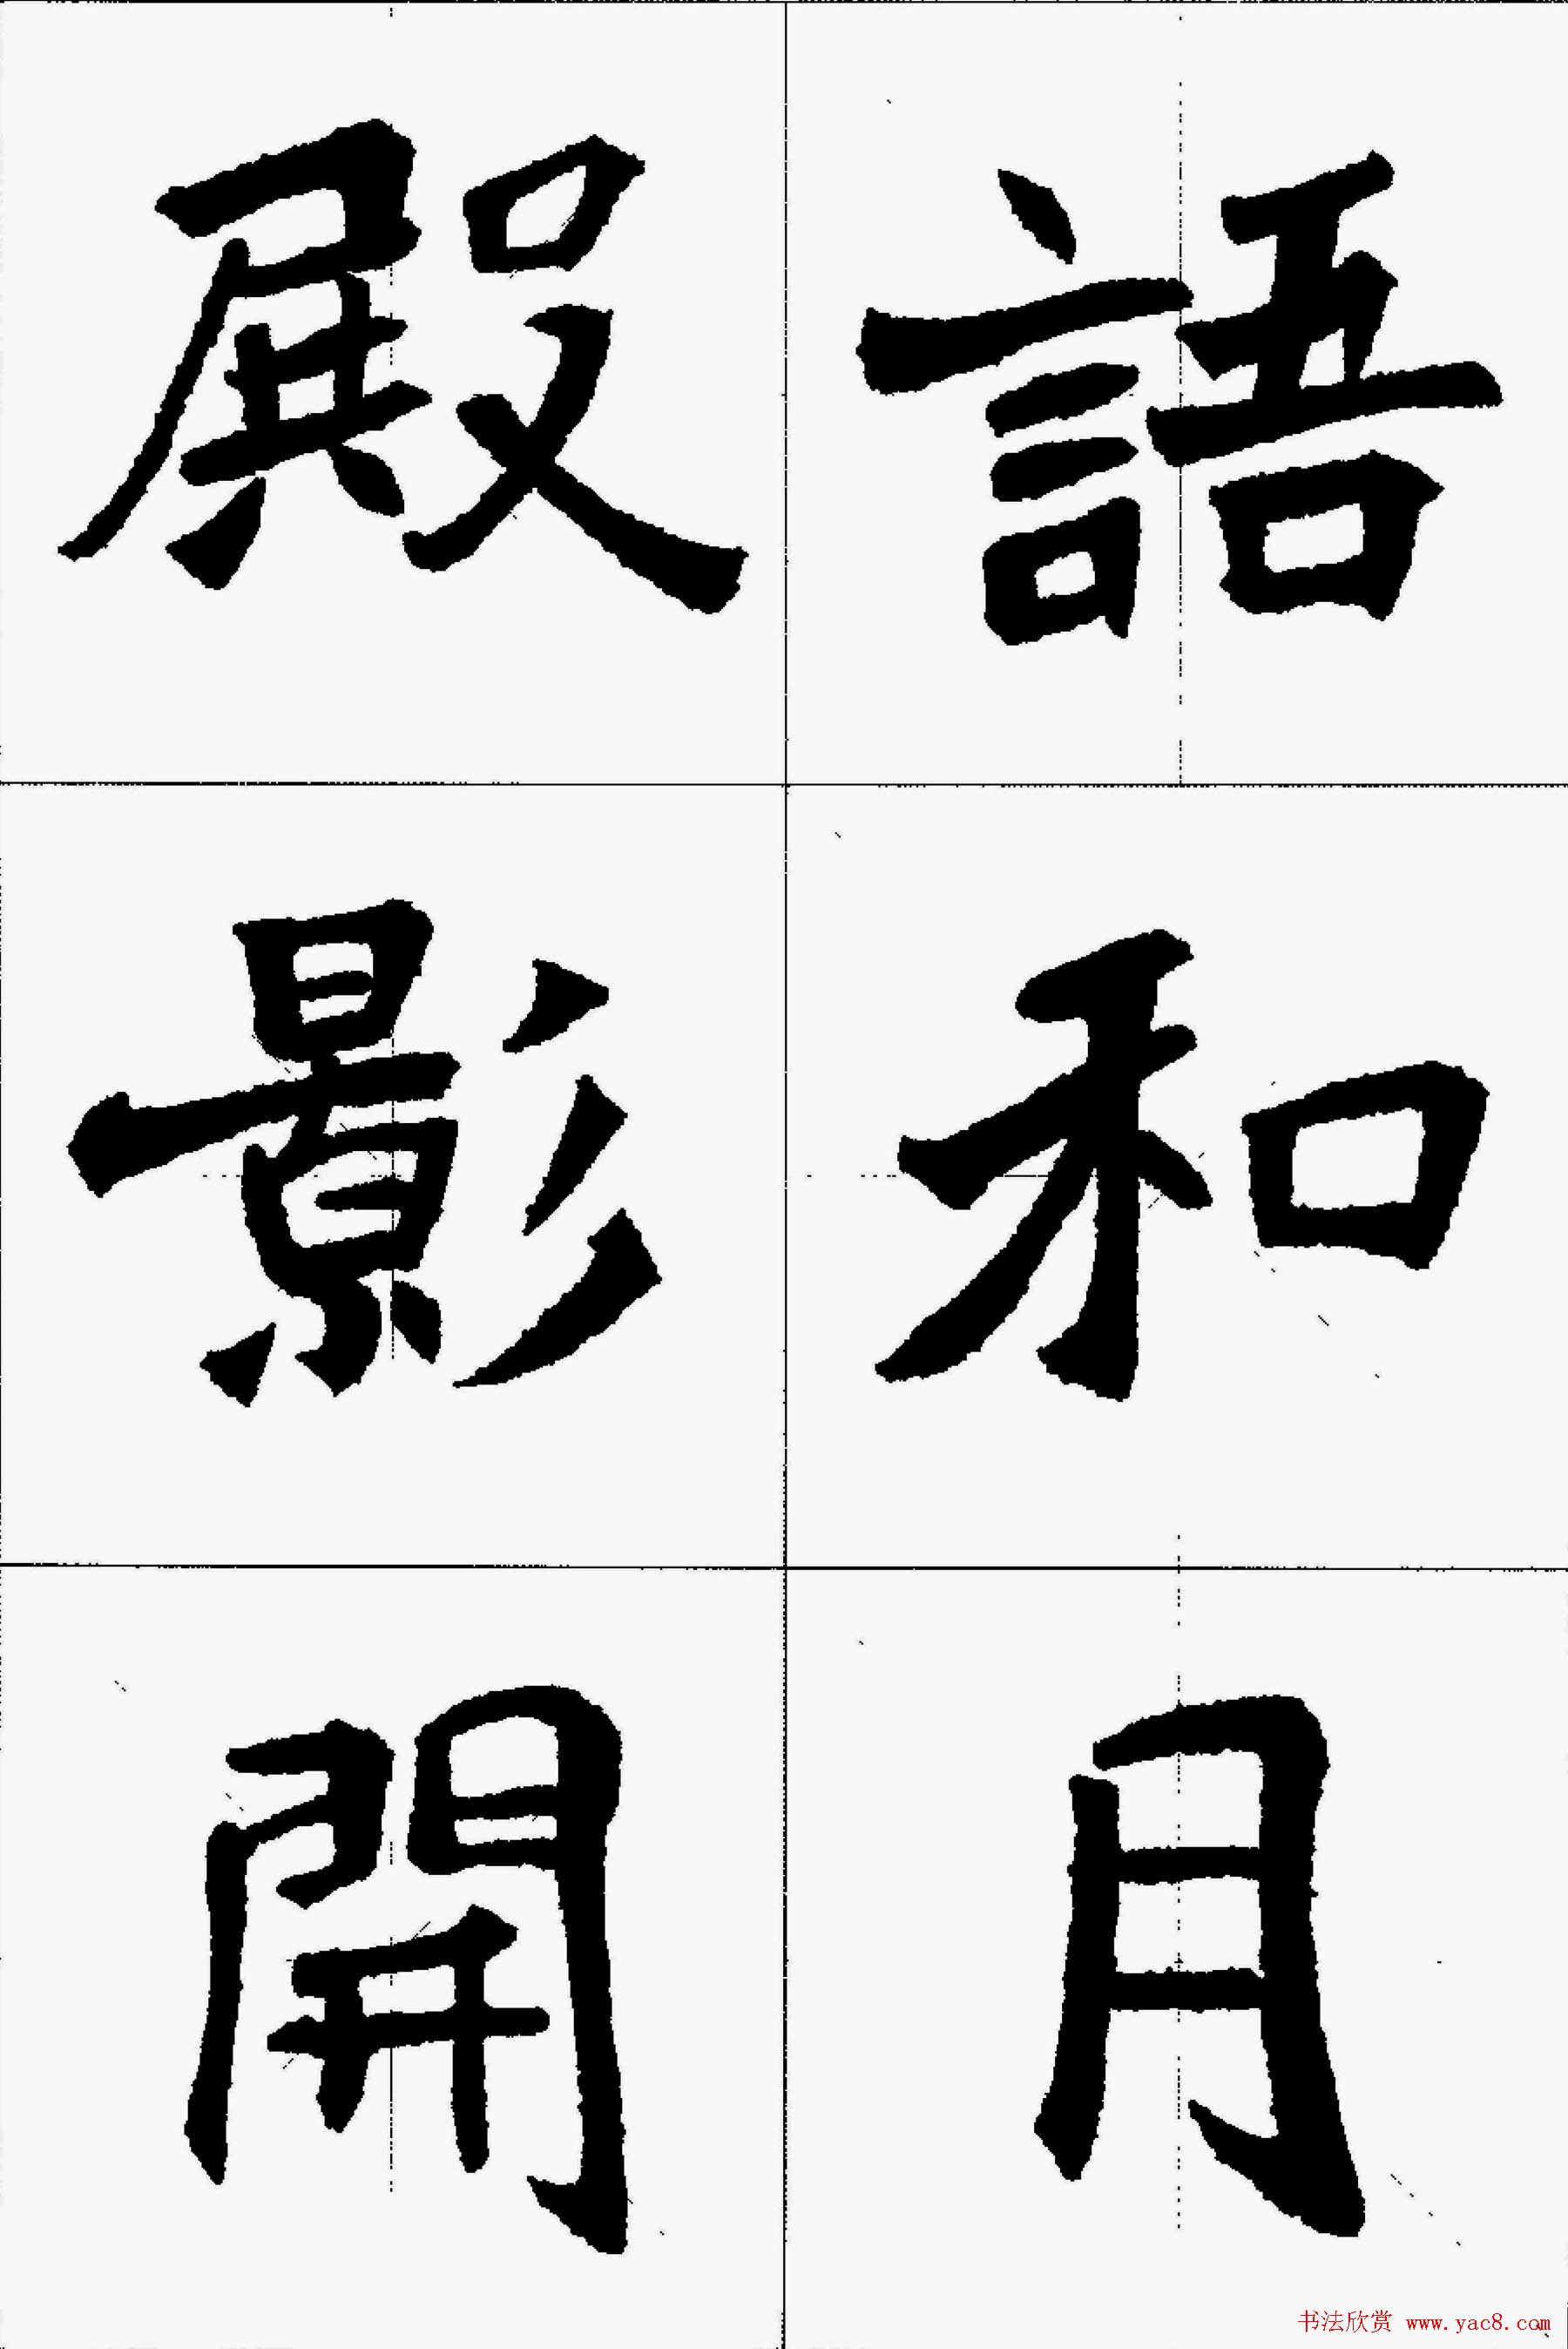 語和月
殿影開
书法欣赏 www.yac8.com